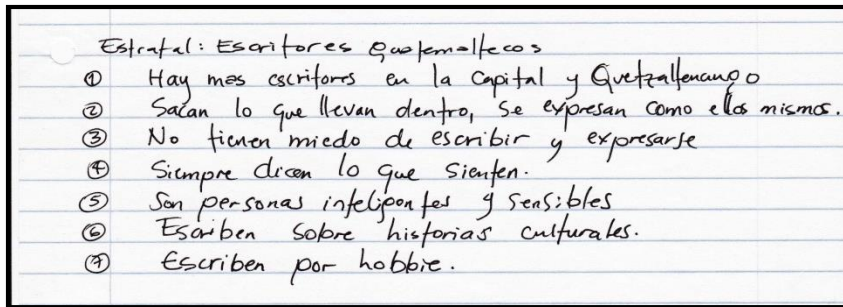 Estratal: Escritores guatemaltecos
① Hay mas escritores en la Capital y Quetzaltenango
② Sacan lo que llevan dentro, se expresan como ellos mismos.
③ No tienen miedo de escribir y expresarse
④ Siempre dicen lo que sienten.
⑤ Son personas inteligentes y sensibles
⑥ Escriben sobre historias culturales.
⑦ Escriben por hobbie.